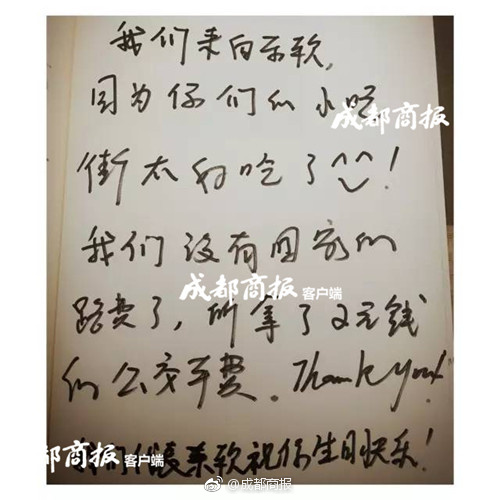 我们来自东软,
因为你们的小吃
成都商报
街太好吃了^^!
我们没有回家的
成都商报客户端
路费了,所拿了2元钱
的公交车费。Thank you!
们代表东软祝你生日快乐!
成都商报客户端
@成都商报